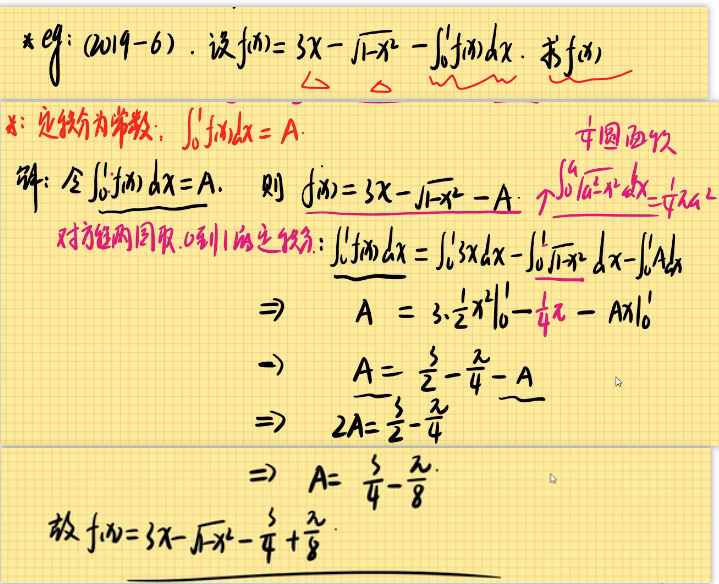 * eg: (2019-6). 设f(x)=3x-√1-x² -∫₀¹f(x)dx. 求f(x)
*: 定积分为常数. ∫₀¹f(x)dx=A.
¼圆面积
解: 令∫₀¹f(x)dx=A. 则 f(x)=3x-√1-x² -A
↑∫₀ᵃ√a²-x² dx=¼πa²
对方程两同取.0到1的定积分: ∫₀¹f(x)dx=∫₀¹3xdx-∫₀¹√1-x² dx-∫₀¹Adx
⇒ A = 3·½x²|₀¹-¼π-Ax|₀¹
⇒ A=3/2-π/4-A
⇒ 2A=3/2-π/4
⇒ A=3/4-π/8.
故f(x)=3x-√1-x² -3/4+π/8.